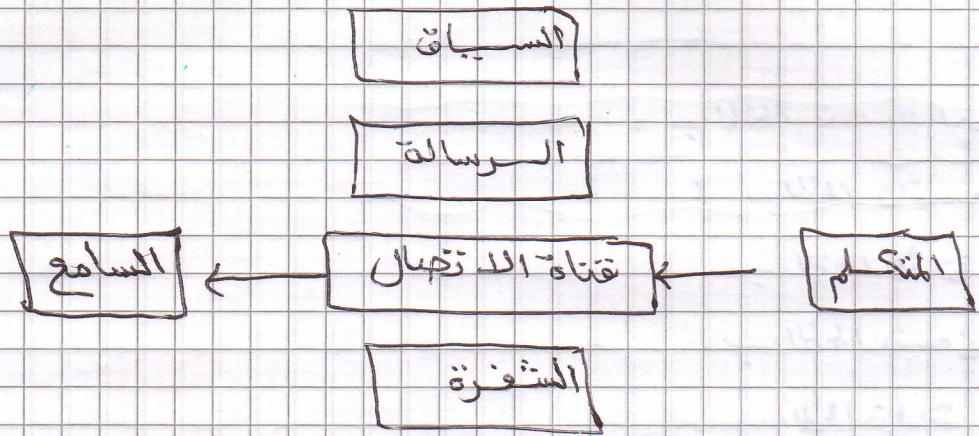 السياق
الرسالة
المتكلم ← قناة الاتصال ← السامع
الشفرة